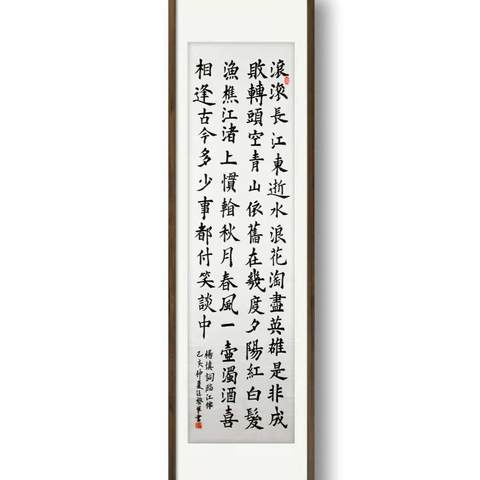 滾滾長江東逝水浪花淘盡英雄是非成
敗轉頭空青山依舊在幾度夕陽紅白髮
漁樵江渚上慣看秋月春風一壺濁酒喜
相逢古今多少事都付笑談中
楊慎詞臨江仙
己亥仲夏書